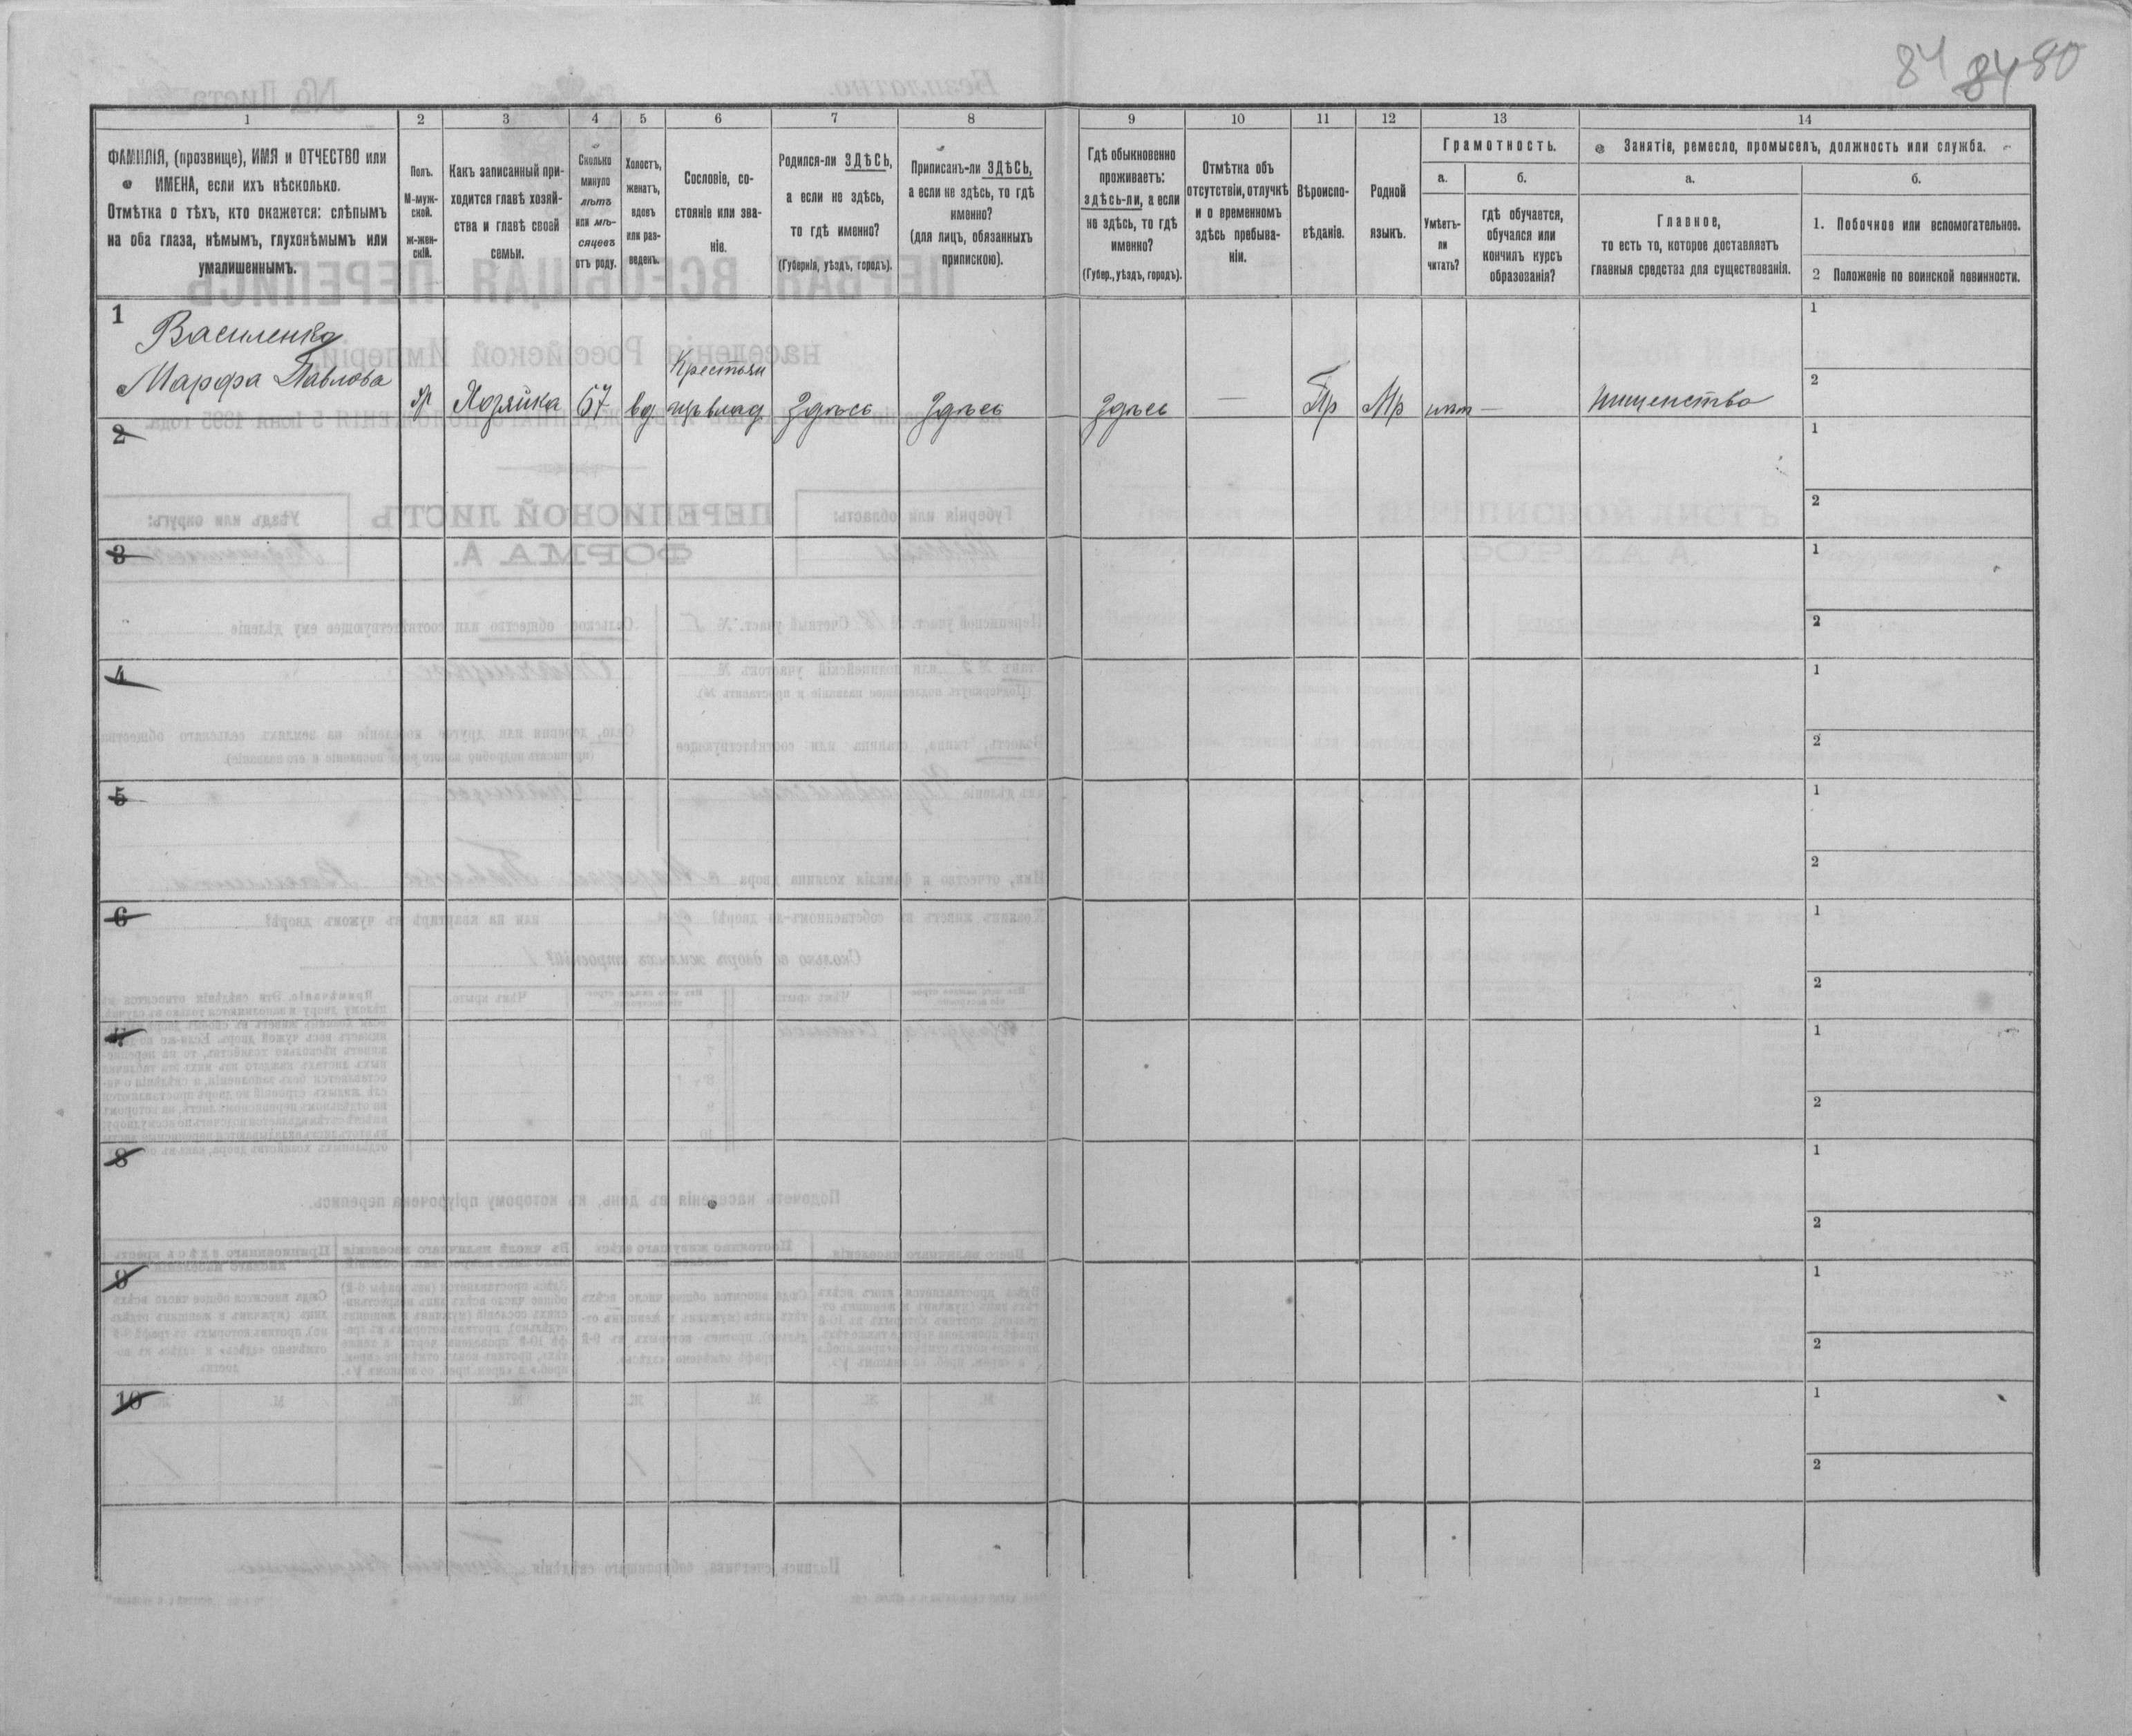 84 84 80
1
ФАМИЛІЯ, (прозвище), ИМЯ и ОТЧЕСТВО или
ИМЕНА, если ихъ нѣсколько.
Отмѣтка о тѣхъ, кто окажется: слѣпымъ
на оба глаза, нѣмымъ, глухонѣмымъ или
умалишеннымъ.
2
Полъ.
М-муж-
ской.
ж-жен-
скій.
3
Какъ записанный при-
ходится главѣ хозяй-
ства и главѣ своей
семьи.
4
Сколько
минуло
лѣтъ
или мѣ-
сяцевъ
отъ роду.
5
Холостъ,
женатъ,
вдовъ
или раз-
веденъ.
6
Сословіе, со-
стояніе или зва-
ніе.
7
Родился-ли ЗДѢСЬ,
а если не здѣсь,
то гдѣ именно?
(Губернія, уѣздъ, городъ).
8
Приписанъ-ли ЗДѢСЬ,
а если не здѣсь, то гдѣ
именно?
(для лицъ, обязанныхъ
припискою).
9
Гдѣ обыкновенно
проживаетъ:
здѣсь-ли, а если
не здѣсь, то гдѣ
именно?
(Губер., уѣздъ, городъ).
10
Отмѣтка объ
отсутствіи, отлучкѣ
и о временномъ
здѣсь пребыва-
ніи.
11
Вѣроиспо-
вѣданіе.
12
Родной
языкъ.
13
Грамотность.
а.
Умѣетъ-
ли
читать?
б.
гдѣ обучается,
обучался или
кончилъ курсъ
образованія?
14
Занятіе, ремесло, промыселъ, должность или служба.
а.
Главное,
то есть то, которое доставляетъ
главныя средства для существованія.
б.
1. Побочное или вспомогательное.
2 Положеніе по воинской повинности.
1
Василенко
Марфа Павлова
ж
Хозяйка
67
вд
Крестьян
Здѣсь
Здѣсь
Здѣсь
—
Пр
Мр
нѣт —
нищенство
1
2
2
1
2
3
1
2
4
1
2
5
1
2
6
1
2
7
1
2
8
1
2
9
1
2
10
1
2